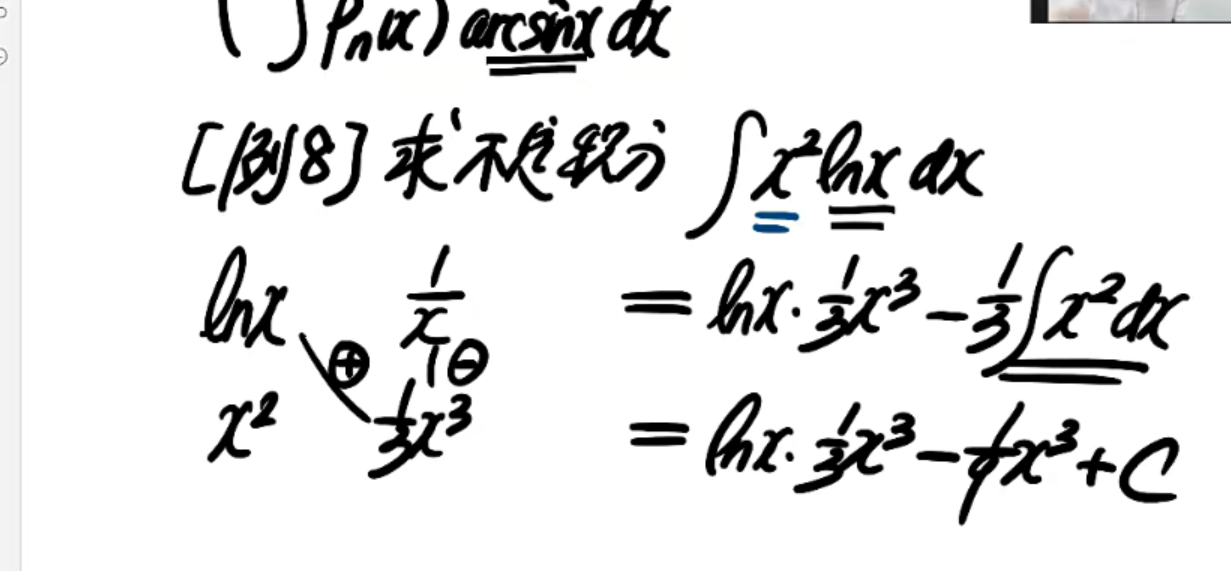 (∫Pₙ(x) arcsinx dx
[例8] 求不定积分 ∫x²lnx dx
lnx 1/x = lnx·1/3x³-1/3∫x²dx
⊕ ⊖
x² 1/3x³ = lnx·1/3x³-1/9x³+C